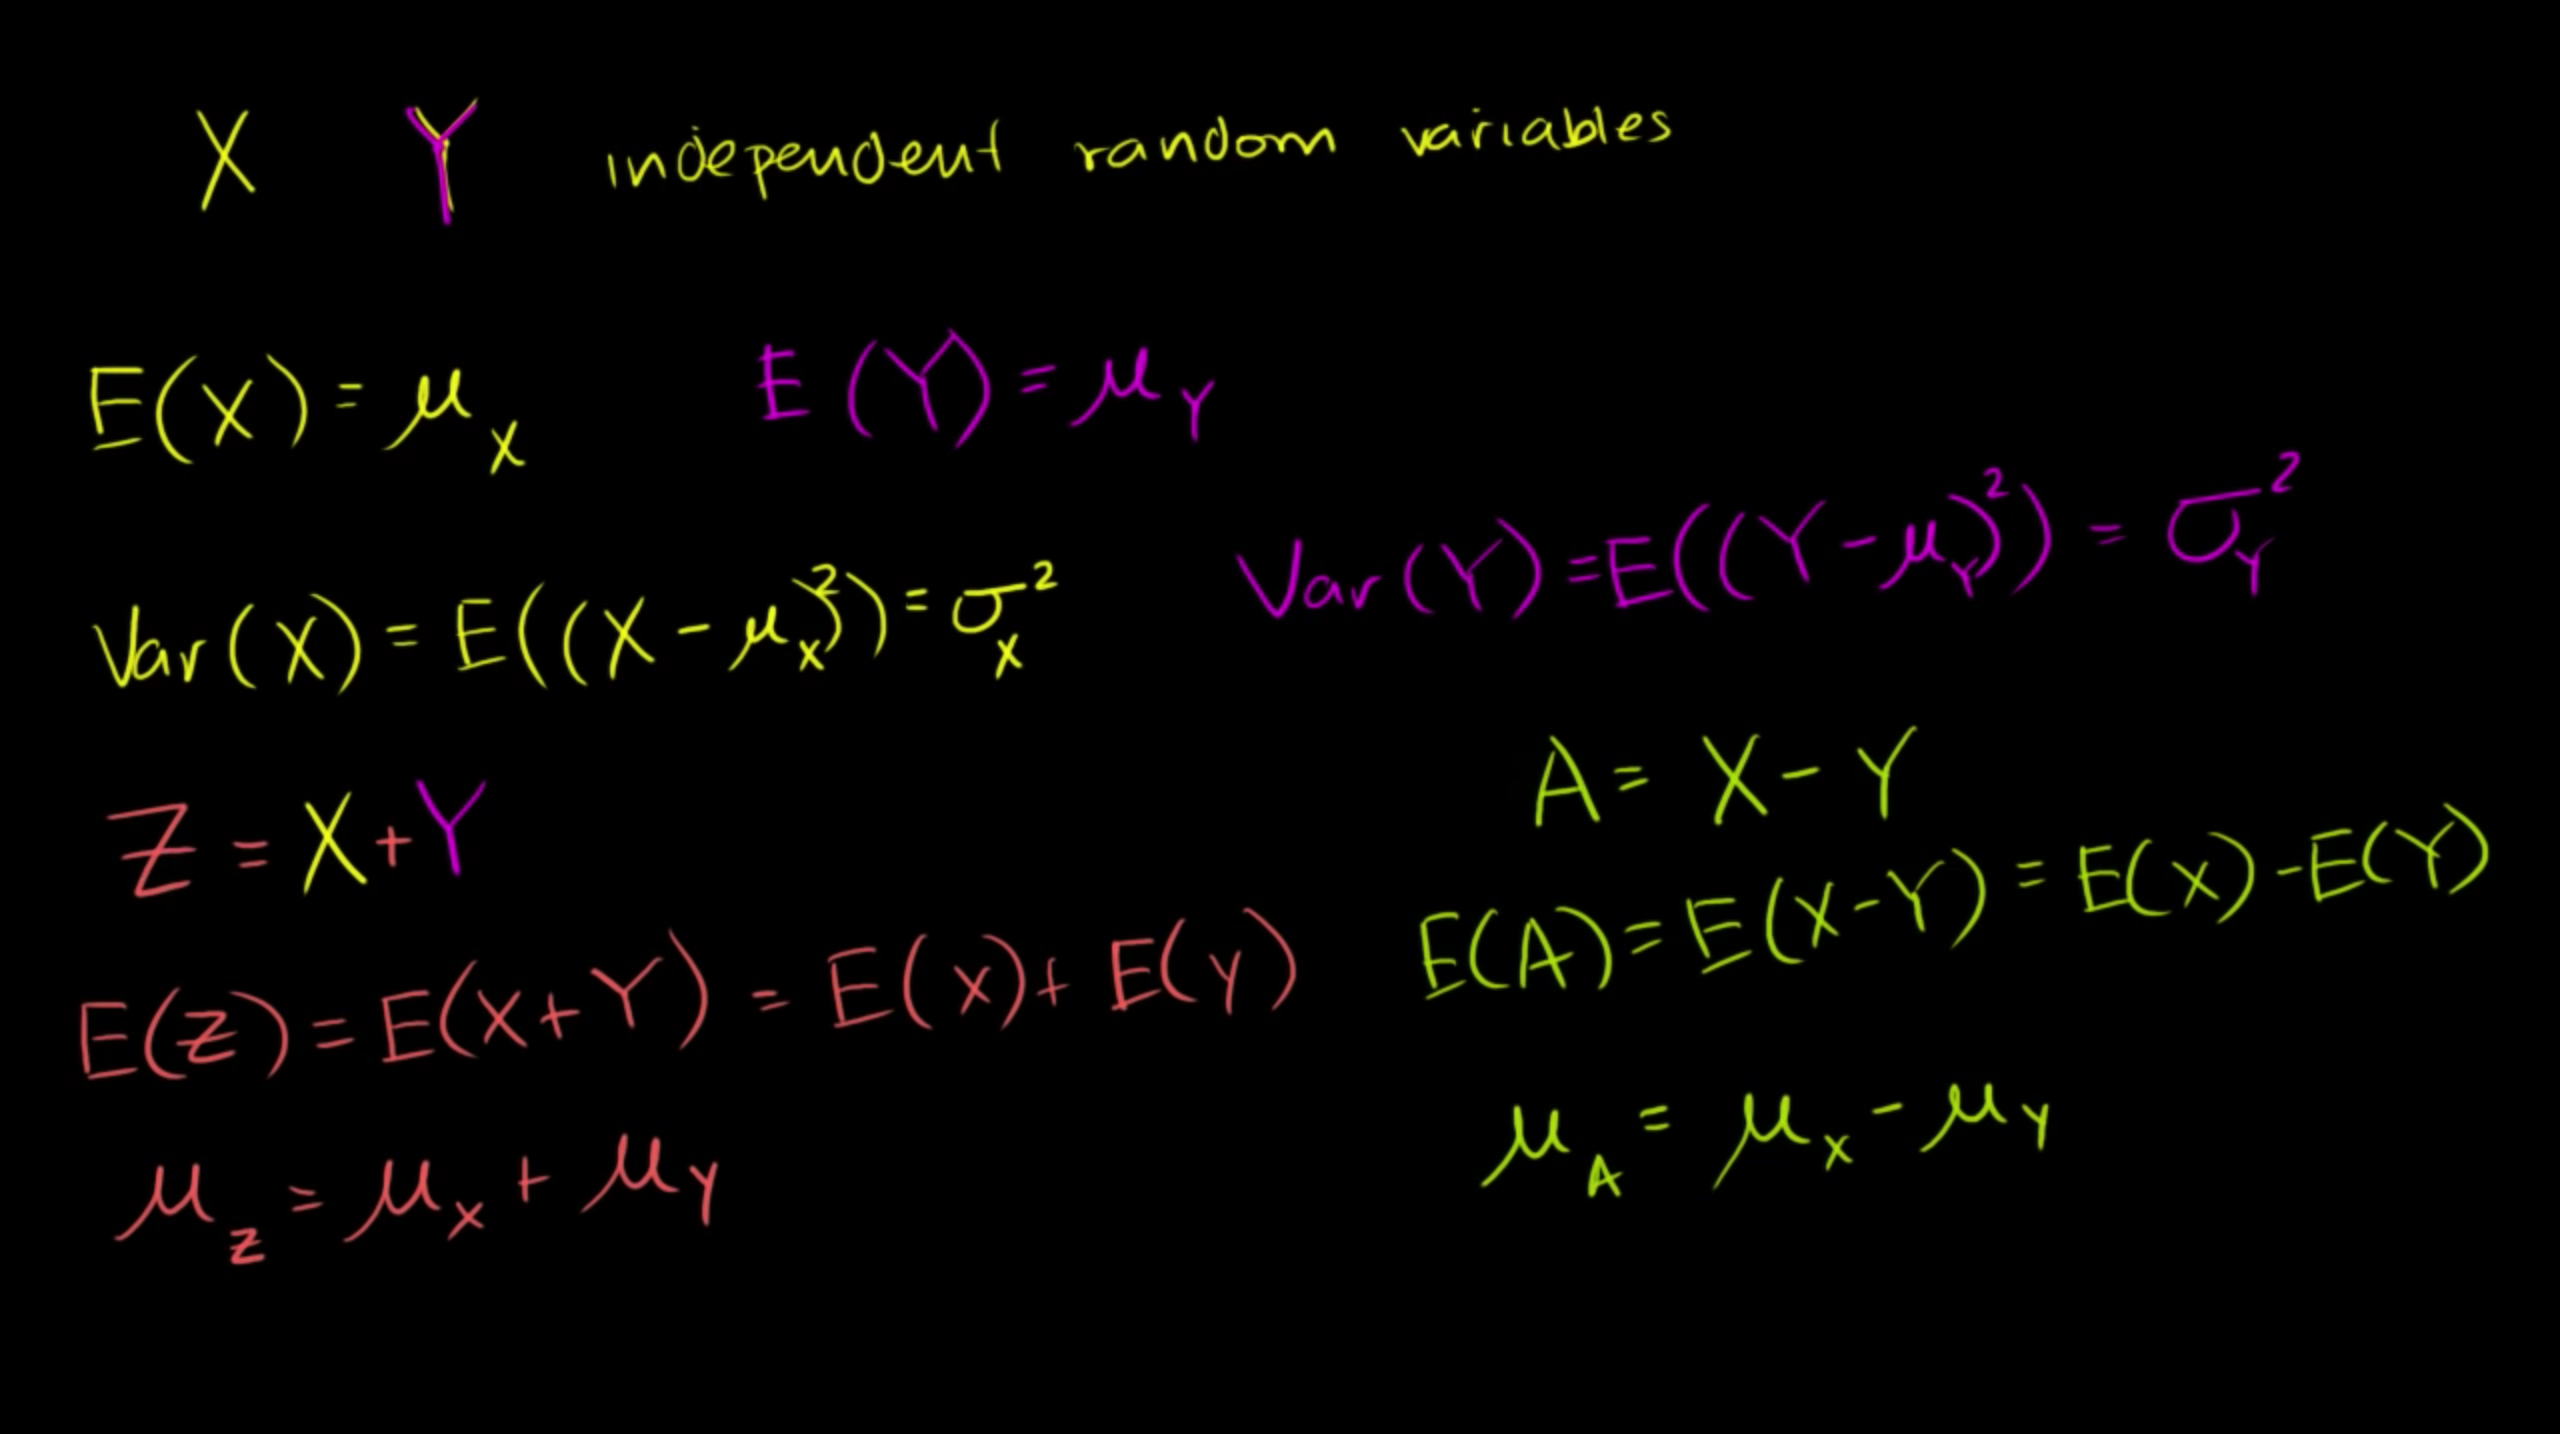 X Y independent random variables
E(X) = μ_X
E(Y) = μ_Y
Var(X) = E((X-μ_X)²) = σ_X²
Var(Y) = E((Y-μ_Y)²) = σ_Y²
Z = X+Y
E(Z) = E(X+Y) = E(X)+ E(Y)
μ_Z = μ_X + μ_Y
A = X-Y
E(A) = E(X-Y) = E(X)-E(Y)
μ_A = μ_X - μ_Y